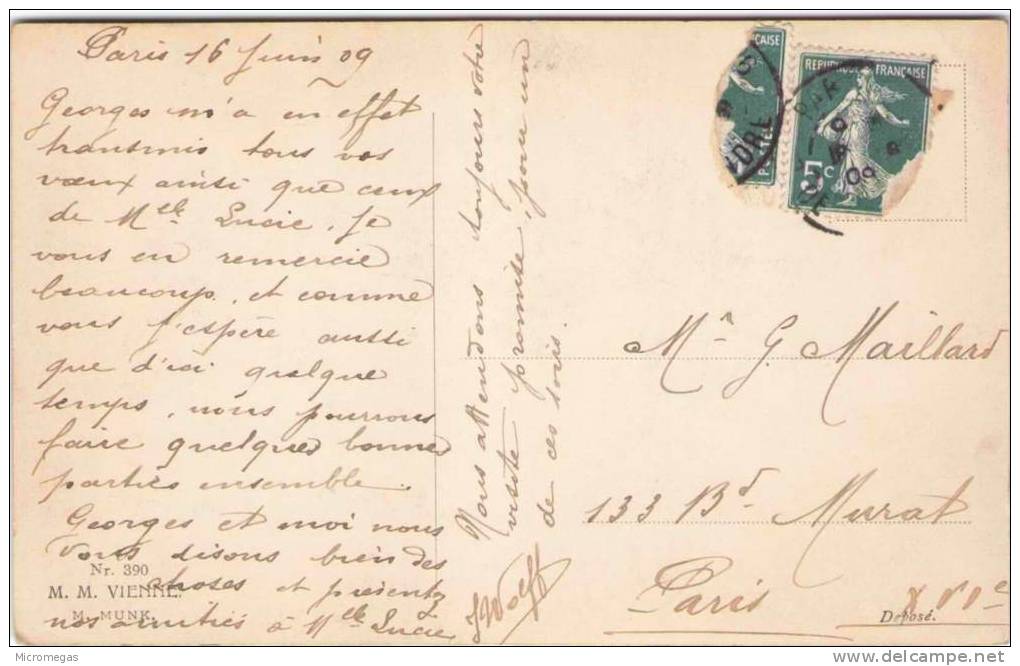 Paris 16 Juin 09
Georges m'a en effet
transmis tous vos
vœux ainsi que ceux
de Melle Lucie. Je
vous en remercie
beaucoup, et comme
vous j'espère aussi
que d'ici quelque
temps, nous pourrons
faire quelques bonnes
parties ensemble.
Georges et moi nous
vous disons bien des
choses et présentez
nos amitiés à Melle Lucie
Nous attendons toujours votre
visite promise, pour un
de ces soirs.
Nr. 390
M. M. VIENNE.
M. MUNK.
REPUBLIQUE FRANÇAISE
5c
Mr G. Maillard
133 Bd Murat
Paris
XVIe
Déposé.
Micromegas
www.delcampe.net